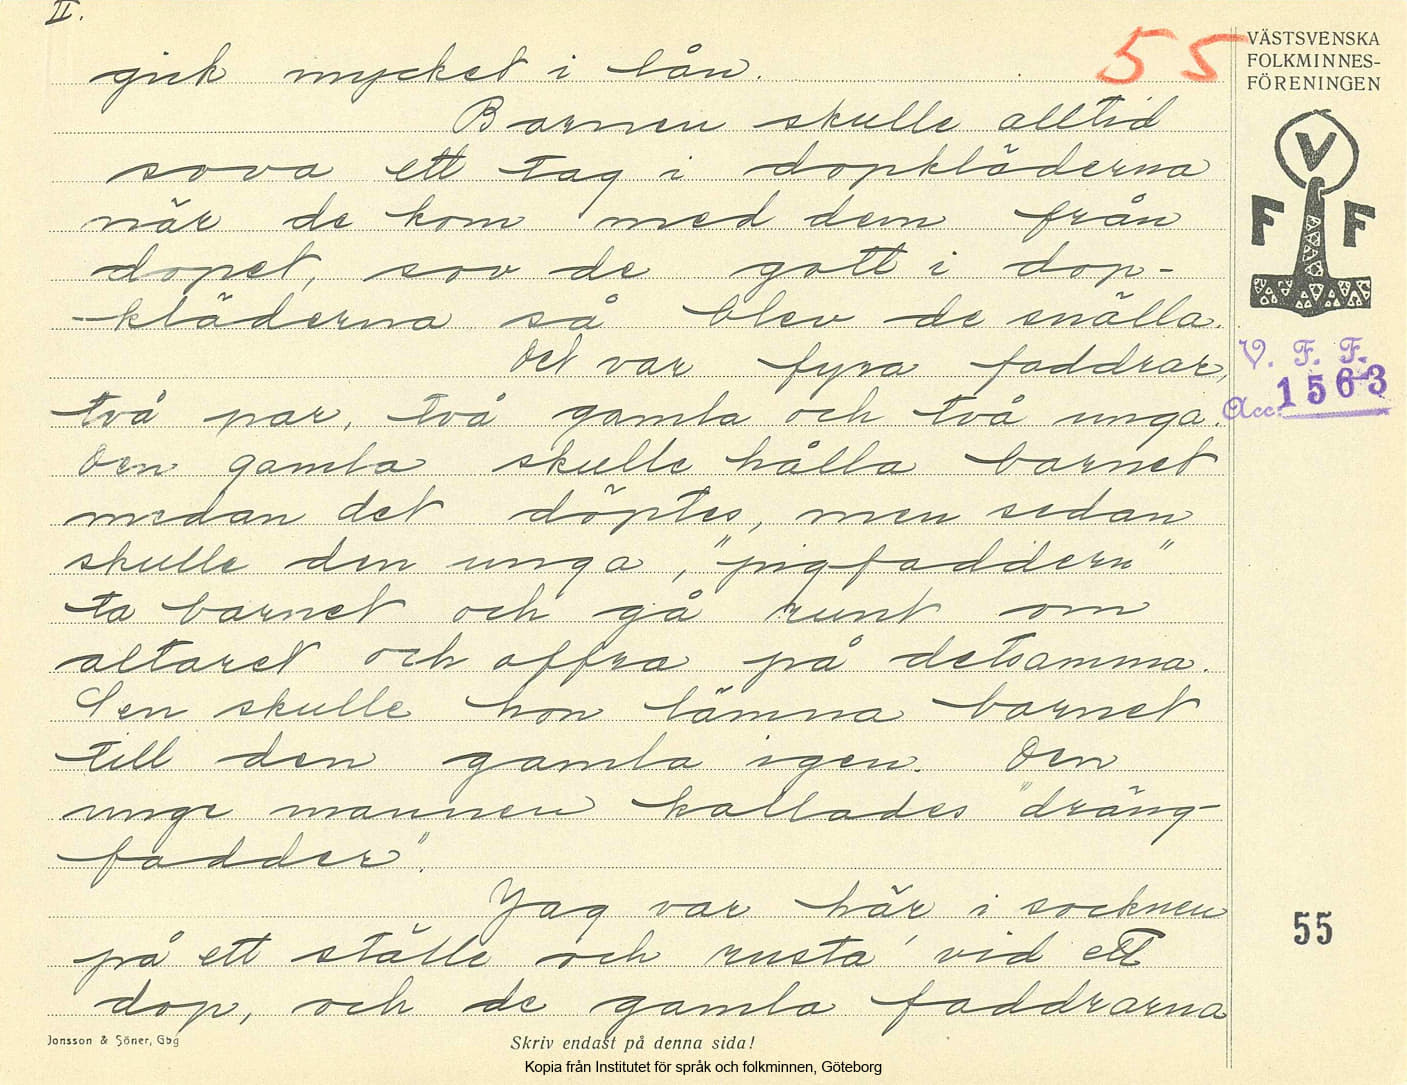 II.
55
gick mycket i lån.
Barnen skulle alltid
sova ett tag i dopkläderna
när de kom med dem från
dopet, sov de gott i dop-
-kläderna så blev de snälla.
Det var fyra faddrar,
två par, två gamla och två unga.
Den gamla skulle hålla barnet
medan det döptes, men sedan
skulle den unga, "pigfaddern"
ta barnet och gå runt om
altaret och offra på detsamma.
Sen skulle hon lämna barnet
till den gamla igen. Den
unge mannen kallades "dräng-
fadder".
Jag var här i socknen
på ett ställe och rusta' vid ett
dop, och de gamla faddrarna
VÄSTSVENSKA
FOLKMINNES-
FÖRENINGEN
V
F F
V. F. F.
Acc: 1563
55
Jonsson & Söner, Gbg
Skriv endast på denna sida!
Kopia från Institutet för språk och folkminnen, Göteborg